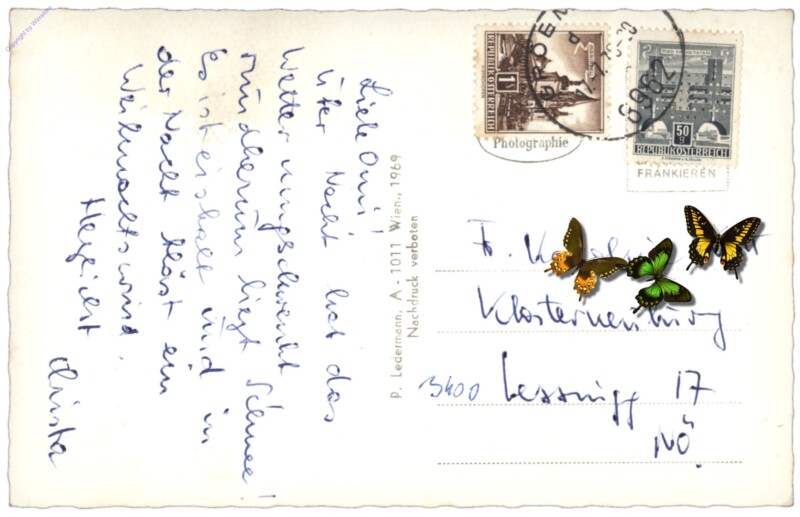 Copyright by Wiensider
Liebe Omi!
Über Nacht hat das
Wetter umgschwenkt
rundherum liegt Schnee!
Es ist eiskalt und in
der Nacht bläst ein
Weihnachtswind.
Herzlichst
Christa
P. Ledermann, A - 1011 Wien., 1969
Nachdruck verboten
1 S
REPUBLIK ÖSTERREICH
50 g
REPUBLIK ÖSTERREICH
6982
Photographie
FRANKIEREN
Klosterneuburg
3400 Lessingg 17
NÖ